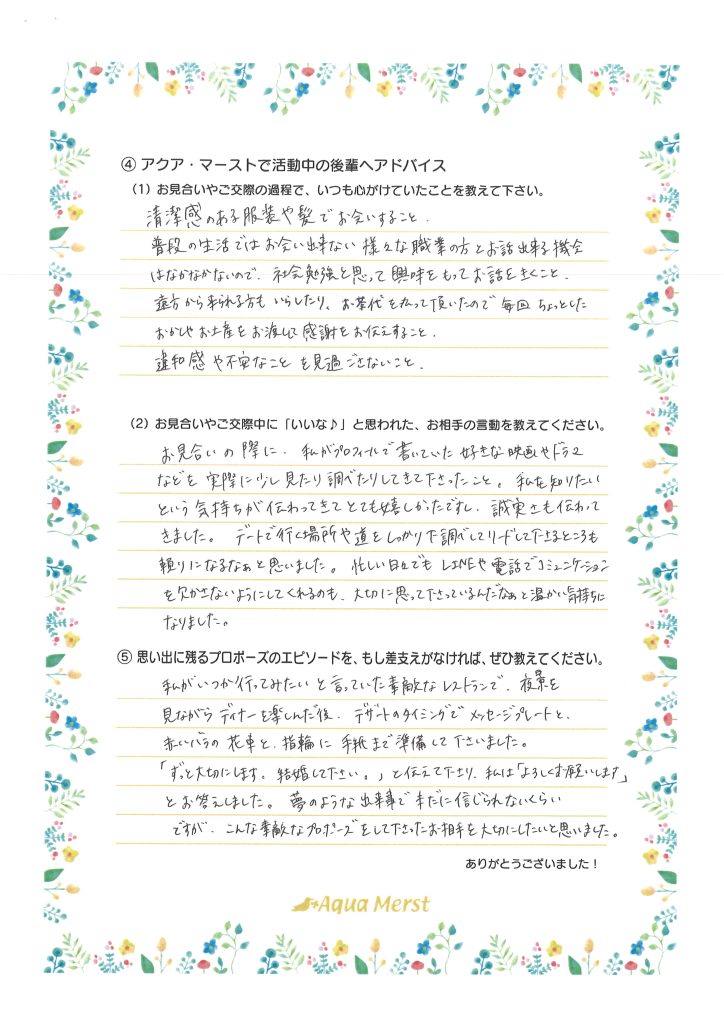 ④ アクア・マーストで活動中の後輩へアドバイス
（1）お見合いやご交際の過程で、いつも心がけていたことを教えて下さい。
清潔感のある服装や髪でお会いすること．
普段の生活ではお会い出来ない 様々な職業の方とお話出来る機会
はなかなかないので、社会勉強と思って興味をもってお話をきくこと．
遠方から来られる方もいらしたり、お茶代を払って頂いたので 毎回 ちょっとした
おかしやお土産をお渡しして感謝をお伝えすること．
違和感や不安なことを見過ごさないこと．
（2）お見合いやご交際中に「いいな♪」と思われた、お相手の言動を教えてください。
お見合いの際に、私がプロフィールで書いていた 好きな映画やドラマ
などを 実際に少し見たり調べたりしてきて下さったこと。 私を知りたい
という気持ちが伝わってきてとても嬉しかったですし、誠実さも伝わって
きました。 デートで行く場所や道をしっかり下調べしてリードして下さるところも
頼りになるなぁと思いました。 忙しい日々でも LINEや電話でコミュニケーション
を欠かさないようにしてくれるのも、大切に思って下さっているんだなぁと温かい気持ちに
なりました。
⑤ 思い出に残るプロポーズのエピソードを、もし差支えがなければ、ぜひ教えてください。
私がいつか行ってみたいと言っていた素敵なレストランで、夜景を
見ながら ディナーを楽しんだ後、デザートのタイミングで メッセージプレートと、
赤いバラの花束と、指輪に 手紙まで準備して下さいました。
「ずっと大切にします。結婚して下さい。」と伝えて下さり、私は「よろしくお願いします」
とお答えしました。 夢のような出来事で まだに信じられないくらい
ですが、こんな素敵なプロポーズをして下さったお相手を大切にしたいと思いました。
ありがとうございました！
Aqua Merst